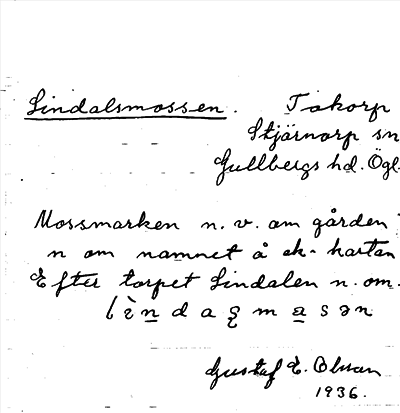 Lindalsmossen. Takorp
Stjärnorp sn
Gullbergs hd. Ögl.
Mossmarken n. v. om gården
n om namnet å ek-kartan
Efter torpet Lindalen n. om.
Gustaf E. Olsson
1936.